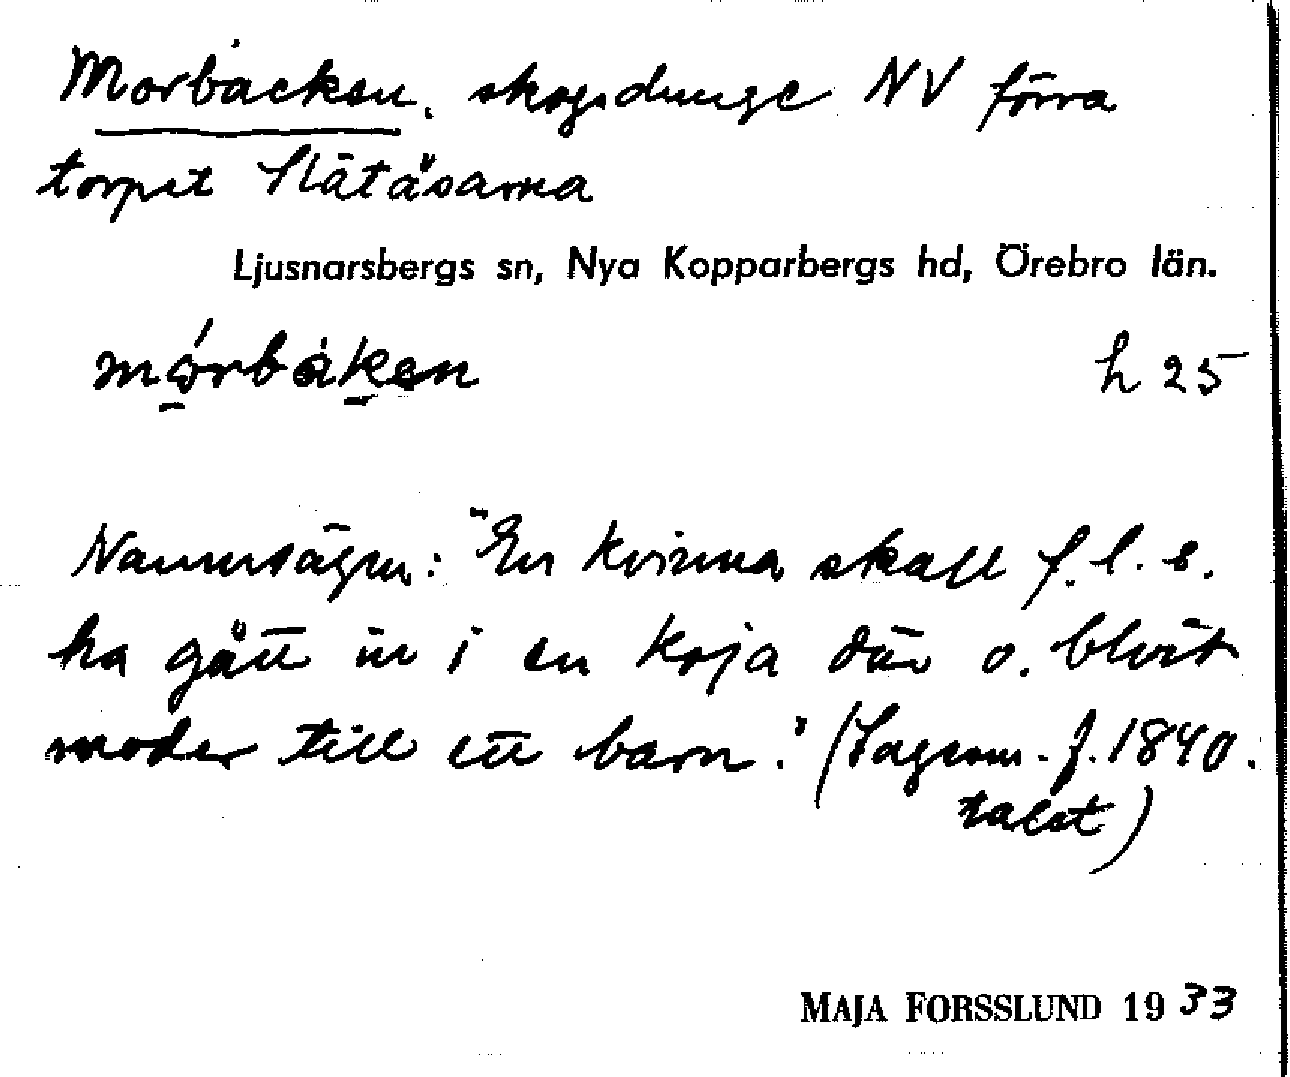 Morbacken, skogsdunge NV förra
torpet Slätåsarna
Ljusnarsbergs sn, Nya Kopparbergs hd, Örebro län.
h 25
Namnsägn: "En kvinna skall f. l. s.
ha gått in i en koja där o. blivit
moder till ett barn." (Sagesm. f. 1840.
talet)
MAJA FORSSLUND 1933